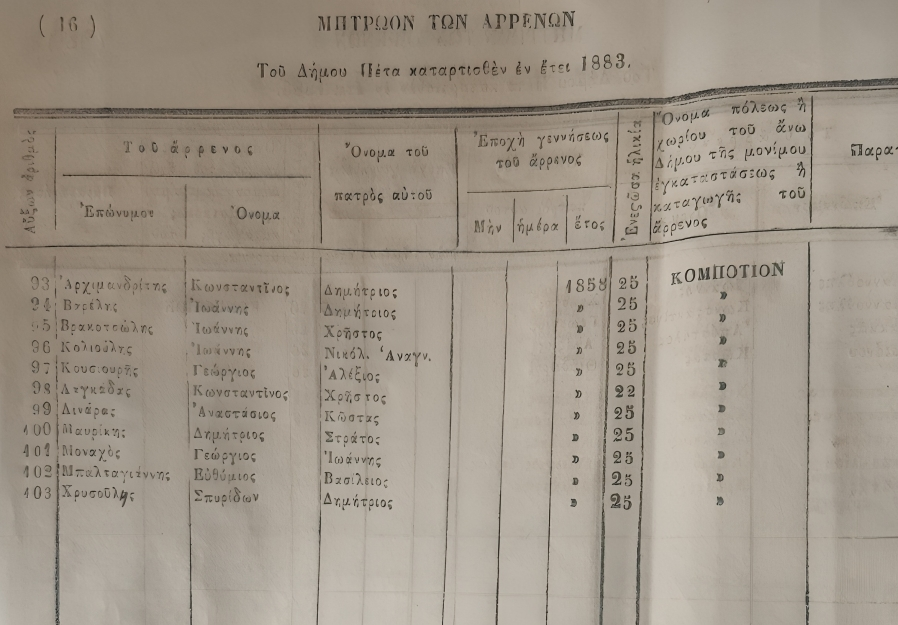 ( 16 )
ΜΗΤΡΩΟΝ ΤΩΝ ΑΡΡΕΝΩΝ
Τοῦ Δήμου Πέτα καταρτισθὲν ἐν ἔτει 1883.
Αὔξων ἀριθμὸς
Τοῦ ἄρρενος
Ἐπώνυμον
Ὄνομα
Ὄνομα τοῦ
πατρὸς αὐτοῦ
Ἐποχὴ γεννήσεως
τοῦ ἄρρενος
Μὴν
ἡμέρα
ἔτος
ἡλικία
Ὄνομα πόλεως ἢ
χωρίου τοῦ ἄνω
Δήμου τῆς μονίμου
ἐγκαταστάσεως ἢ
καταγωγῆς τοῦ
ἄρρενος
Παρατ
93 Ἀρχιμανδρίτης Κωνσταντῖνος Δημήτριος 1858 25 ΚΟΜΠΟΤΙΟΝ
94 Ἰωάννης Δημήτριος » 25 »
95 Βρακοτσώλης Ἰωάννης Χρῆστος » 25 »
96 Κολιούλης Ἰωάννης Νικόλ. Ἀναγν. » 25 »
97 Κουσιουρῆς Γεώργιος Ἀλέξιος » 25 »
98 Λαγκάδας Κωνσταντῖνος Χρῆστος » 22 »
99 Λινάρας Ἀναστάσιος Κῶστας » 25 »
100 Μαυρίκης Δημήτριος Στράτος » 25 »
101 Μοναχὸς Γεώργιος Ἰωάννης » 25 »
102 Μπαλταγιάννης Εὐθύμιος Βασίλειος » 25 »
103 Χρυσούλης Σπυρίδων Δημήτριος » 25 »